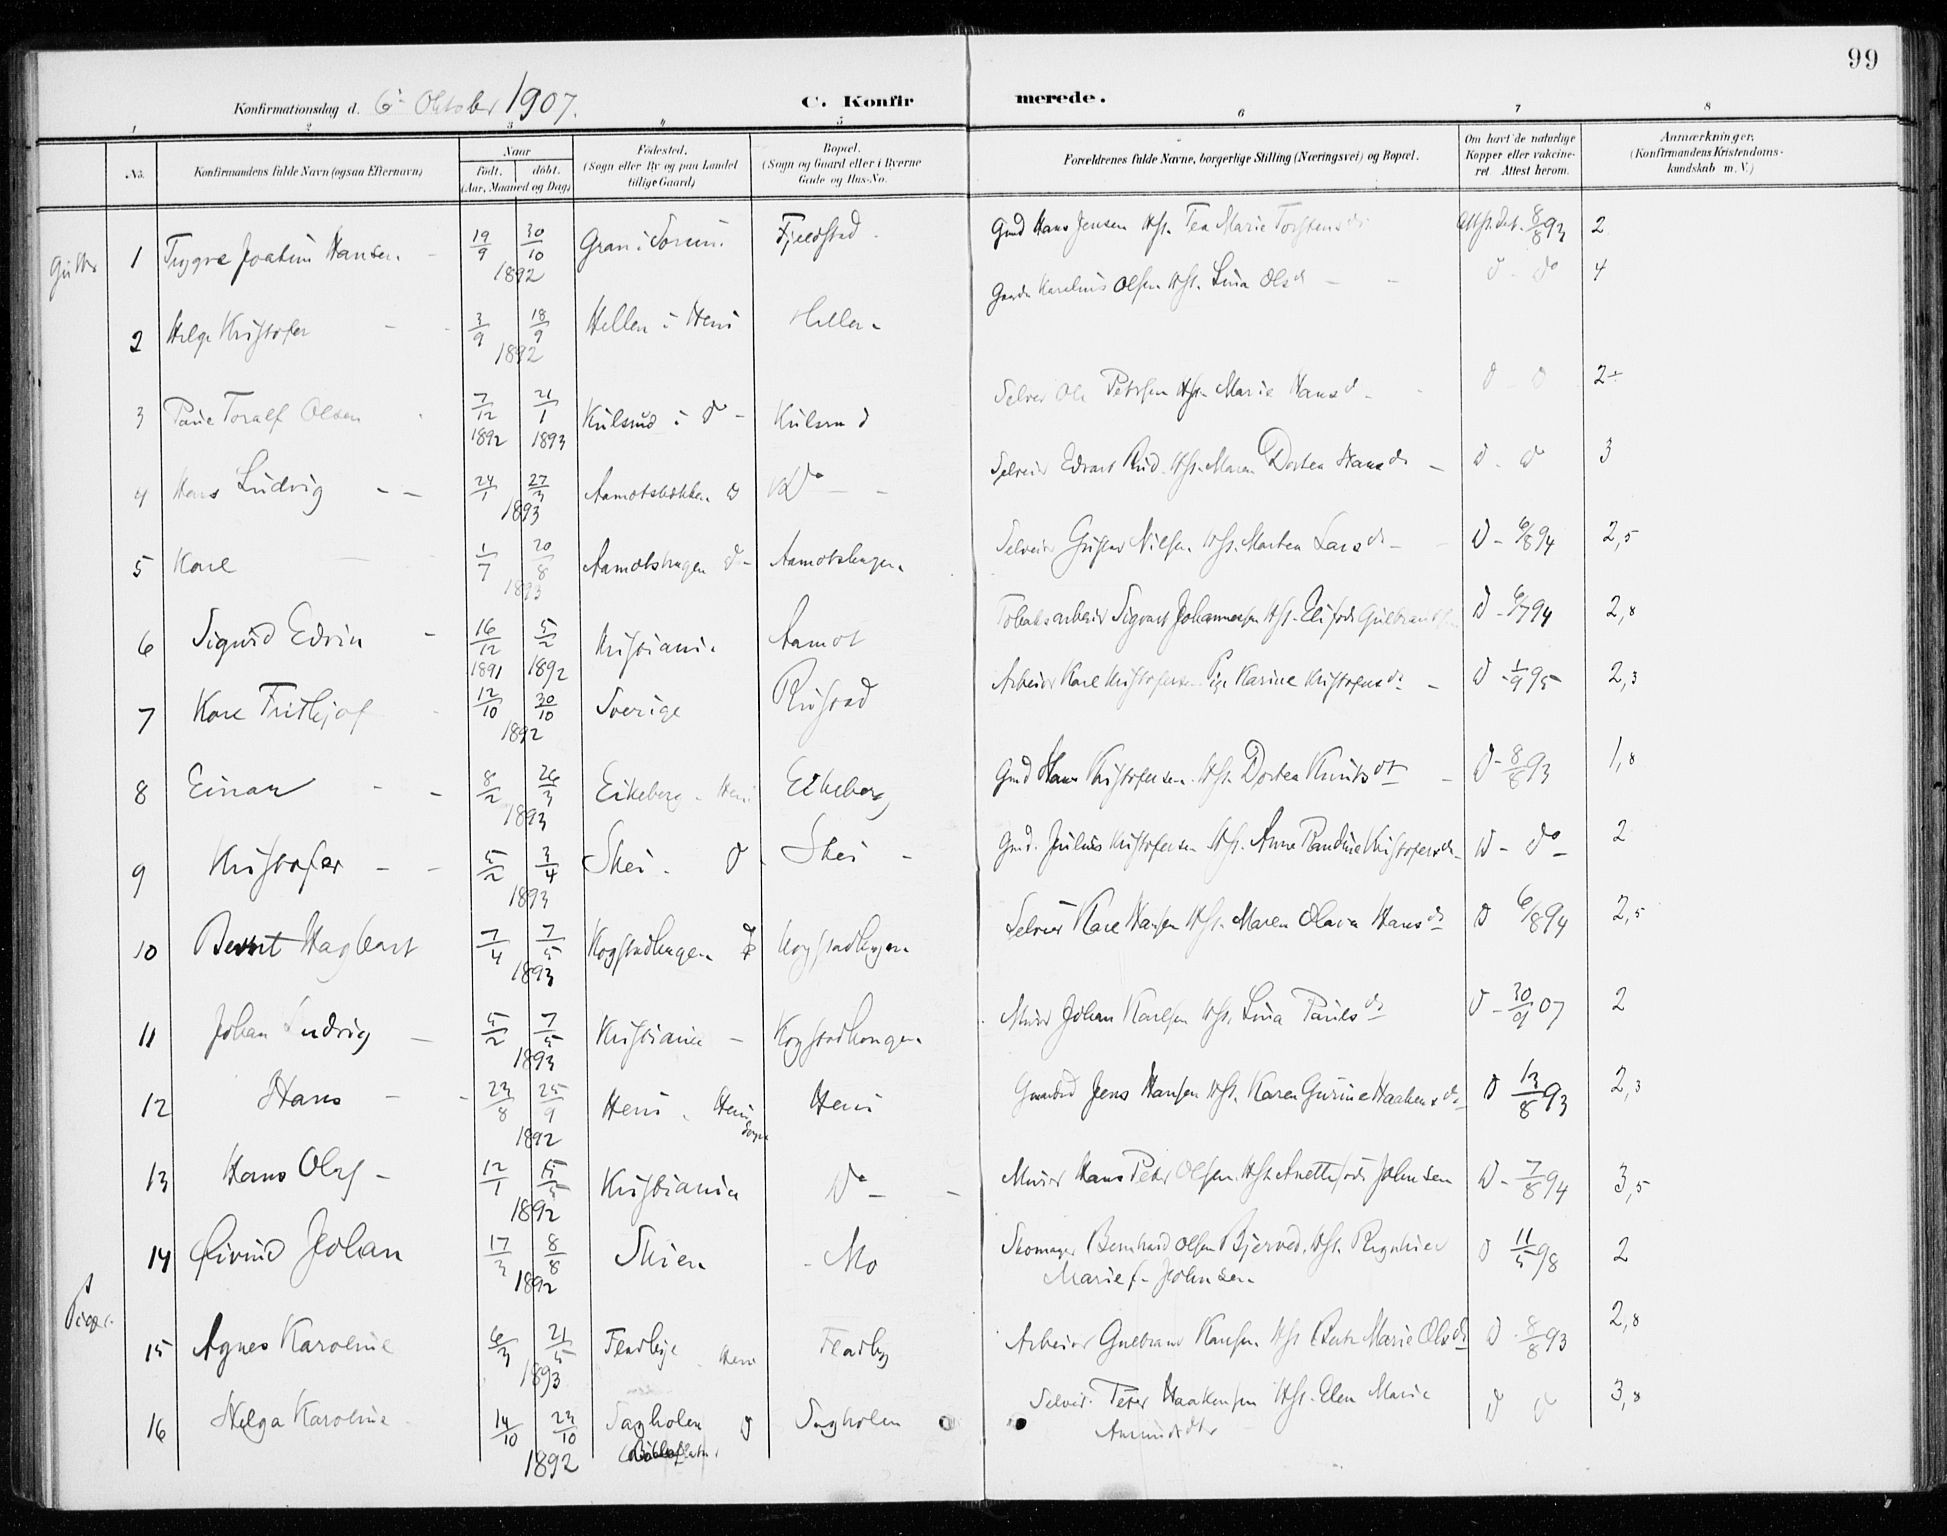 99
Konfirmationsdag d. 6 Oktober 1907. C. Konfirmerede.
1 2 3 4 5 6 7 8
No. Konfirmandens fulde Navn (ogsaa Efternavn) Naar født. døbt. (Aar, Maaned og Dag) Fødested. (Sogn eller By og paa Landet tillige Gaard) Bopæl. (Sogn og Gaard eller i Byerne Gade og Hus-No. Forældrenes fulde Navne, borgerlige Stilling (Næringsvei) og Bopæl. Om havt de naturlige Kopper eller vaccineret Attest herom. Anmærkninger. (Konfirmandens Kristendomskundskab m. V.)
Gutter 1 Trygve Joakim Hansen 19/9 30/10 1892 Gran i Fjeldstad Gmd Hans Jensen Hst. Tea Marie 8/8 93 2
2 Helge Kristofer 3/9 18/9 1892 Hellen i Heni Hellen Olsen Hst. Lina Olsd d do 4
3 Toralf Olsen 7/12 1892 21/1 1893 Kulsrud i do Kulsrud Selveier Ole Petersen Hst. Marie Hansd d d 2÷
4 Hans Ludvig 24/1 27/3 1893 Aamotsbakken d do Selveier Edvart Rud. Hst. Maren Dortea Hansdr d d 3
5 Karl 1/7 20/8 1893 Aamotshagen d Aamotshagen Selveier Gustav Nilsen Hst. Martea Larsdr d 6/8 94 2,5
6 Sigurd Edvin 16/12 1891 5/2 1892 Kristiania Aamot Tobaksarbeider Sigvart Johannesen Hst. d 94 2,8
7 Kare Frithjof 12/10 30/10 1892 Sverige Rustad Arbeider Karl Kristofersen Pige Karine Kristofersdr d 1/9 95 2,3
8 Einar 8/2 26/3 1893 Eikeberg Heni Eikeberg Gmd Hans Kristofersen Hst. Dortea Knutsdt d 8/8 93 1,8
9 Kristofer 5/2 3/4 1893 Skei d Skei Gmd. Julius Kristofersen Hst. Anne Randine Kristofersdr d do 2
10 Bernt Hagbart 7/4 7/5 1893 Kogstadhagen d Kogstadhagen Selveier Karl Hansen Hst. Maren Olava Hansdr d 6/8 94 2,5
11 Johan Ludvig 5/2 7/5 1893 Kristiania Kogstadhagen Murer Johan Karlsen Hst. Lina Paulsdr d 30/9 07 2
12 Hans 23/8 25/9 1892 Heni Heni Sogn Heni Jens Hansen Hst. Karen Gurine Haakensdr d 13/8 93 2,3
13 Hans Olaf 12/1 15/5 1892 Kristiania do Murer Hans Peter Olsen Hst. Anette født Johnsen d 7/8 94 3,5
14 Øivind Johan 17/3 8/8 1892 Skien Mo Skomager Bernhard Olsen Bjerved. Hst. Ragnhild
Marie f. Johnsen d 11/5 98 2
Piger 15 Agnes Karoline 6/3 21/5 1893 Fladbye Heni Fladby Arbeider Gulbrand Hansen Hst. Berte Marie Olsdr d 8/8 93 2,8
16 Helga Karoline 14/10 23/10 1892 Sagholen d Sagholen Selveier Peter Haakensen Hst. Elen Marie
Amundsdtr d d 3,8